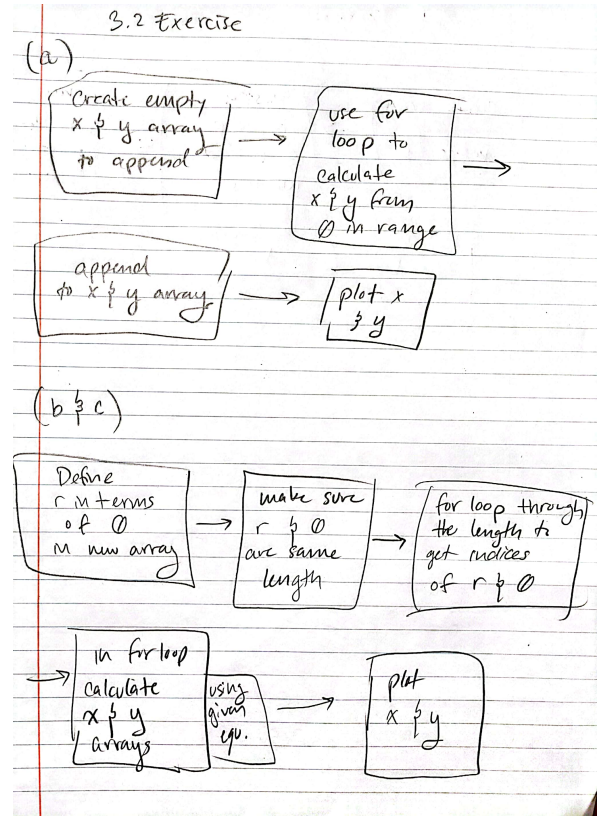 3.2 Exercise
(a)
Create empty
x & y array
to append
use for
loop to
calculate
x & y from
Ø in range
append
to x & y array
plot x
& y
(b & c)
Define
r in terms
of Ø
in new array
make sure
r & Ø
are same
length
for loop through
the length to
get indices
of r & Ø
in for loop
calculate
x & y
arrays
using
given
equ.
plot
x & y